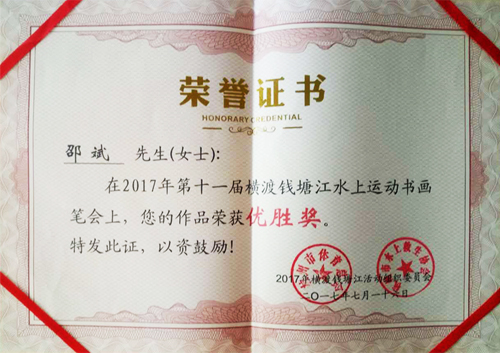 荣誉证书
HONORARY CREDENTIAL
邵斌 先生(女士):
在2017年第十一届横渡钱塘江水上运动书画
笔会上，您的作品荣获优胜奖。
特发此证，以资鼓励!
2017年横渡钱塘江活动组织委员会
二〇一七年七月一十六日